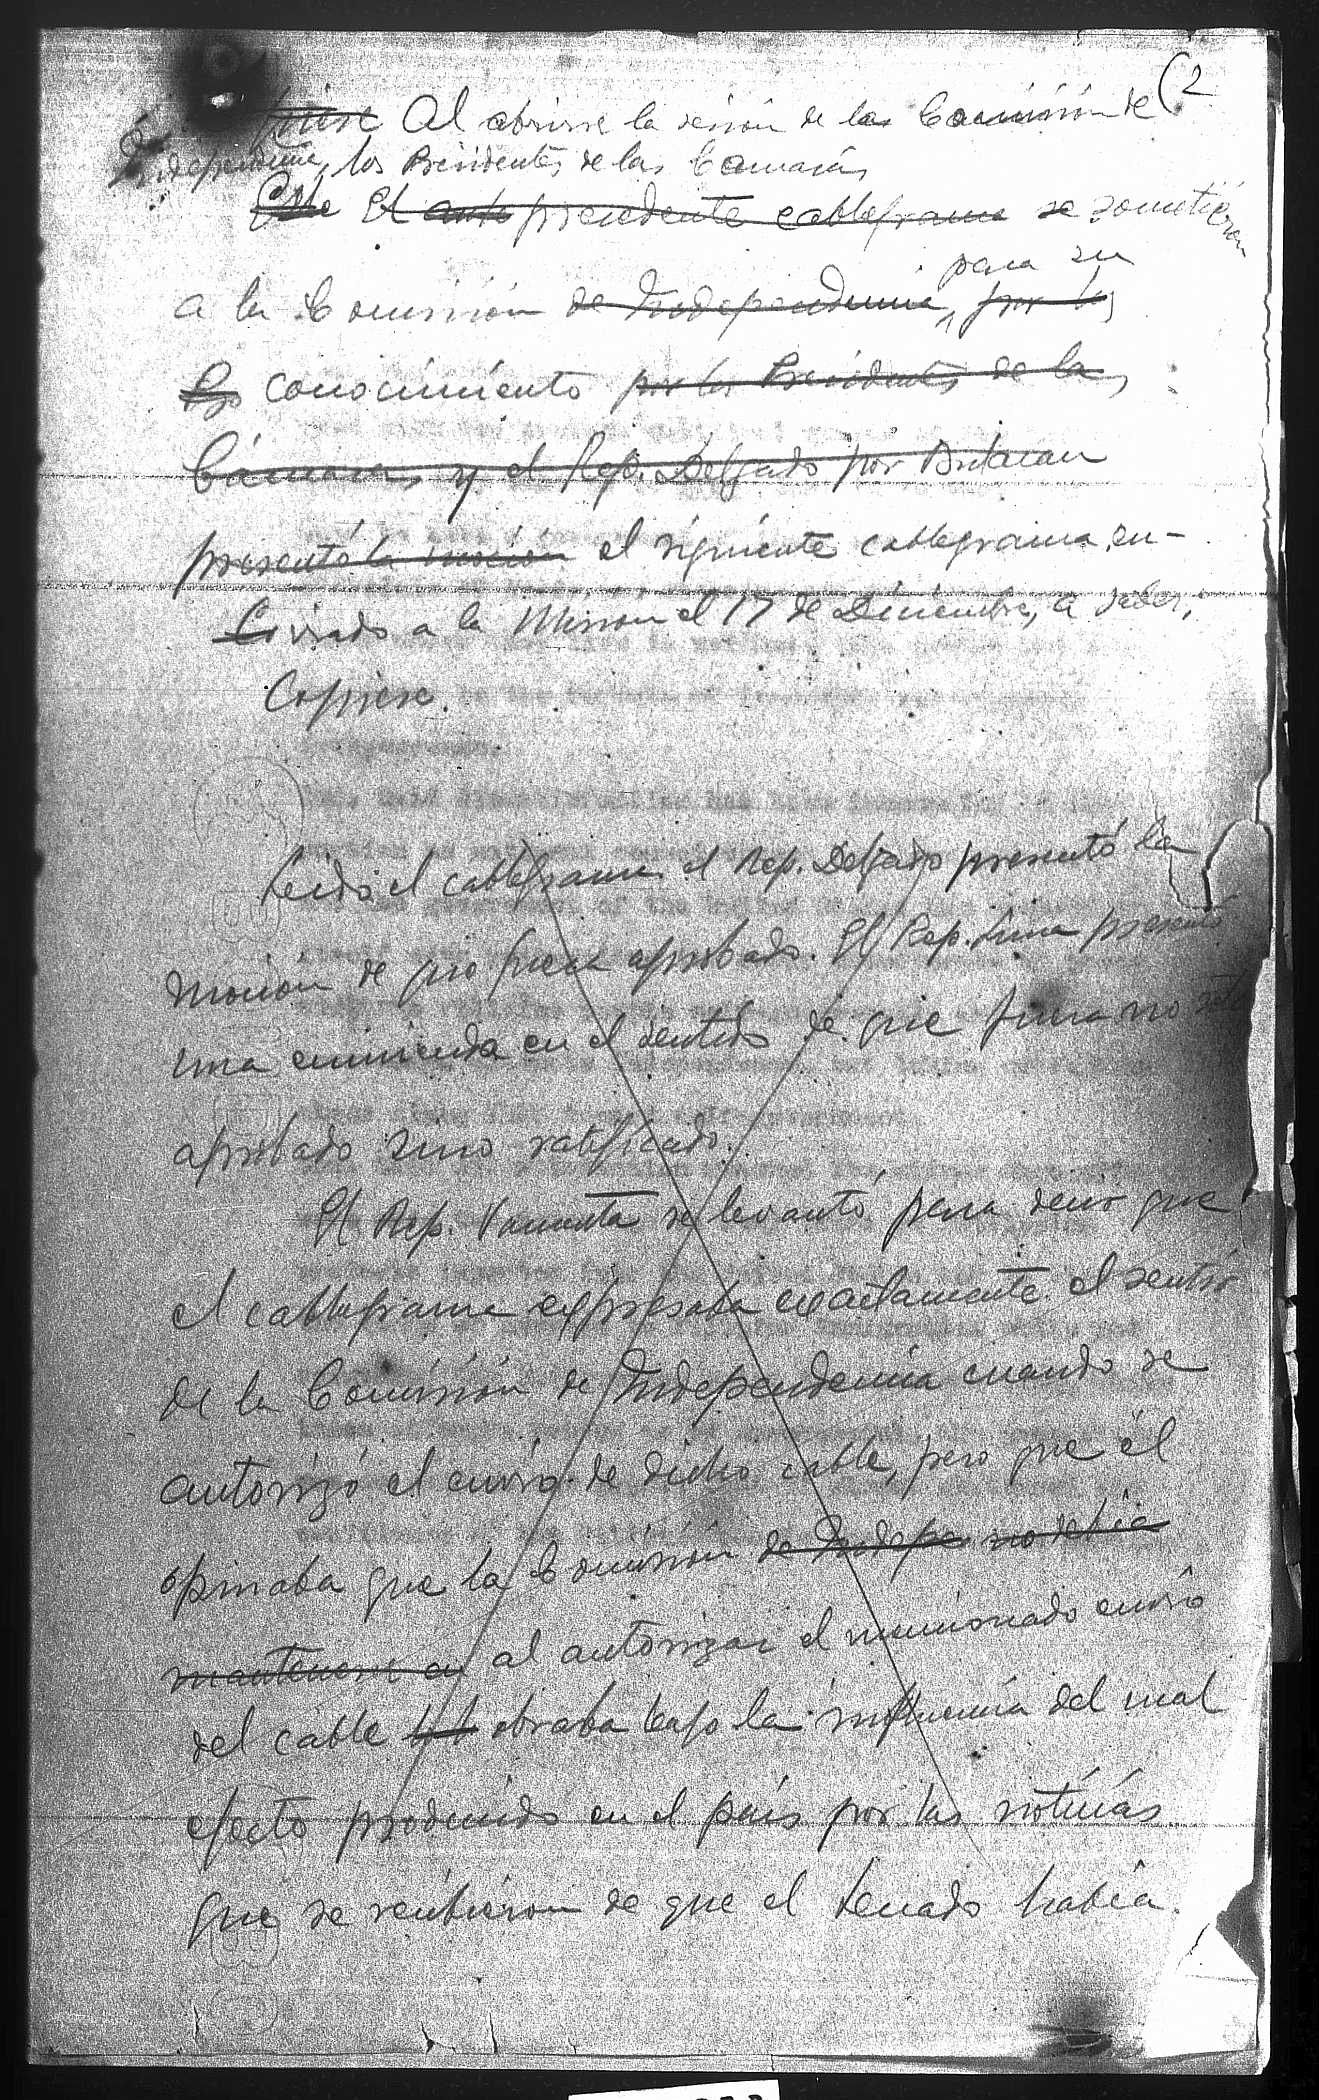 (2
Al abrirse la sesión de la Comisión de
Independencia, los Presidentes de las Camaras
Este El ante precedente cablegrama se sometieron
para su
a la Comisión de Independencia, por los
conocimiento por los Presidentes de las
Cámaras, y el Rep. Delgado por Bulacan
presentó la moción el siguiente cablegrama, en-
viado a la Misión el 17 de Diciembre, a saber:
Copiese.
Leido el cablegrama el Rep. Delgado presentó la
moción de que fuera aprobado. El Rep. Lima presentó
una enmienda en el sentido de que fuera no solo
aprobado sino ratificado.
El Rep. Varona se levantó para decir que
el cablegrama expresaba exactamente el sentir
de la Comisión de Independencia cuando se
autorizó el envio de dicho cable, pero que él
opinaba que la Comisión de Indepe no debia
mantenerse en al autorizar el mencionado envio
del cable obraba bajo la influencia del mal
efecto producido en el país por las noticias
que se recibieron de que el Senado había